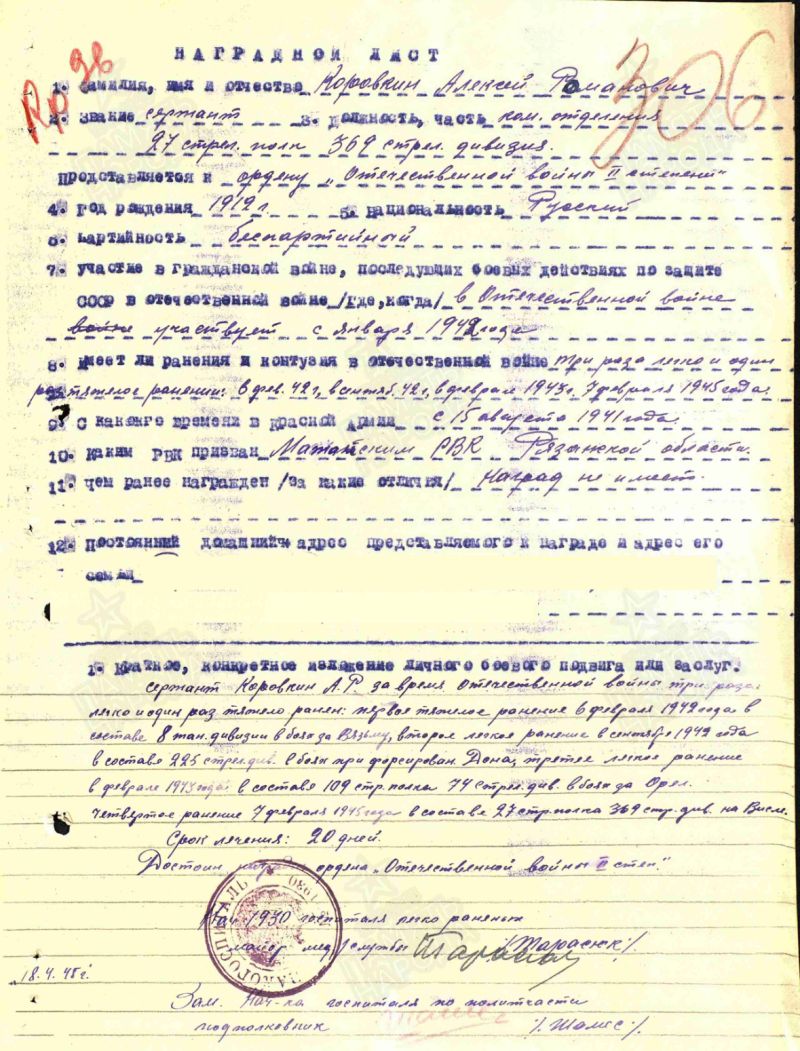 НАГРАДНОЙ ЛИСТ
Rp 36
306
1. Фамилия, имя и отчество Коровкин Алексей Романович
2. Звание сержант 3. Должность, часть ком. отделения
27 стрел. полк 369 стрел. дивизия.
Представляется к ордену „Отечественной войны II степени"
4. Год рождения 1912 г. 5. Национальность Русский
6. Партийность беспартийный
7. Участие в гражданской войне, последующих боевых действиях по защите
СССР в отечественной войне /где, когда/ в Отечественной войне
войне участвует с января 1942 года
8. Имеет ли ранения и контузия в отечественной войне три раза легко и один
раз тяжелое ранении: 6 фев. 42 г, в сентяб. 42 г, в феврале 1943 г. 7 февраля 1945 года.
9. С какого времени в Красной Армии с 15 августа 1941 года.
10. Каким РВК призван РВК Рязанской области.
11. Чем ранее награжден /за какие отличия/ Наград не имеет.
12. Постоянный домашний адрес представляемого к награде и адрес его
семьи
1. Краткое, конкретное изложение личного боевого подвига или заслуг.
сержант Коровкин А.Р. за время Отечественной войны три раза
легко и один раз тяжело ранен: первое тяжелое ранение 6 февраля 1942 года в
составе 8 тан. дивизии в боях за Вязьму, второе легкое ранение в сентябре 1942 года
в составе 225 стрел. див. в боях при форсирован. Дона, третее легкое ранение
в феврале 1943 года в составе 109 стр. полка 74 стрел. див. в боях за Орел.
Четвертое ранение 7 февраля 1945 года в составе 27 стр. полка 369 стр. див. на Висле.
Срок лечения: 20 дней.
Достоин ордена „Отечественной войны II степ."
Нач 1930 госпиталя легко раненых
майор мед/службы /Тарасюк/.
18.4.45 г.
Зам. Нач-ка госпиталя по политчасти
подполковник /Шамес/.